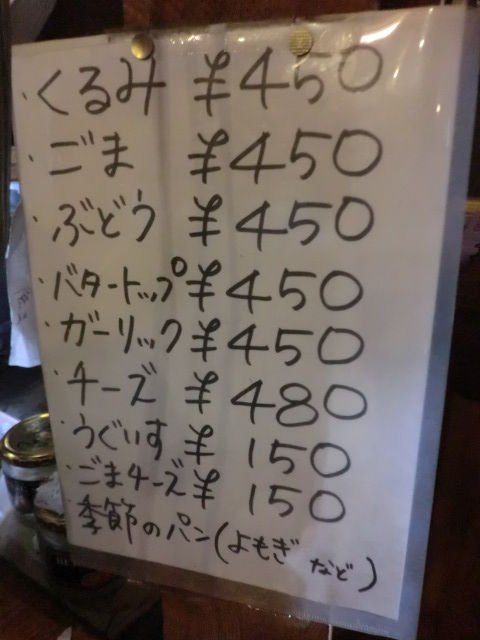 ・くるみ ¥450
・ごま ¥450
・ぶどう ¥450
・バタートップ ¥450
・ガーリック ¥450
・チーズ ¥480
・うぐいす ¥150
・ごまチーズ ¥150
・季節のパン(よもぎ など)